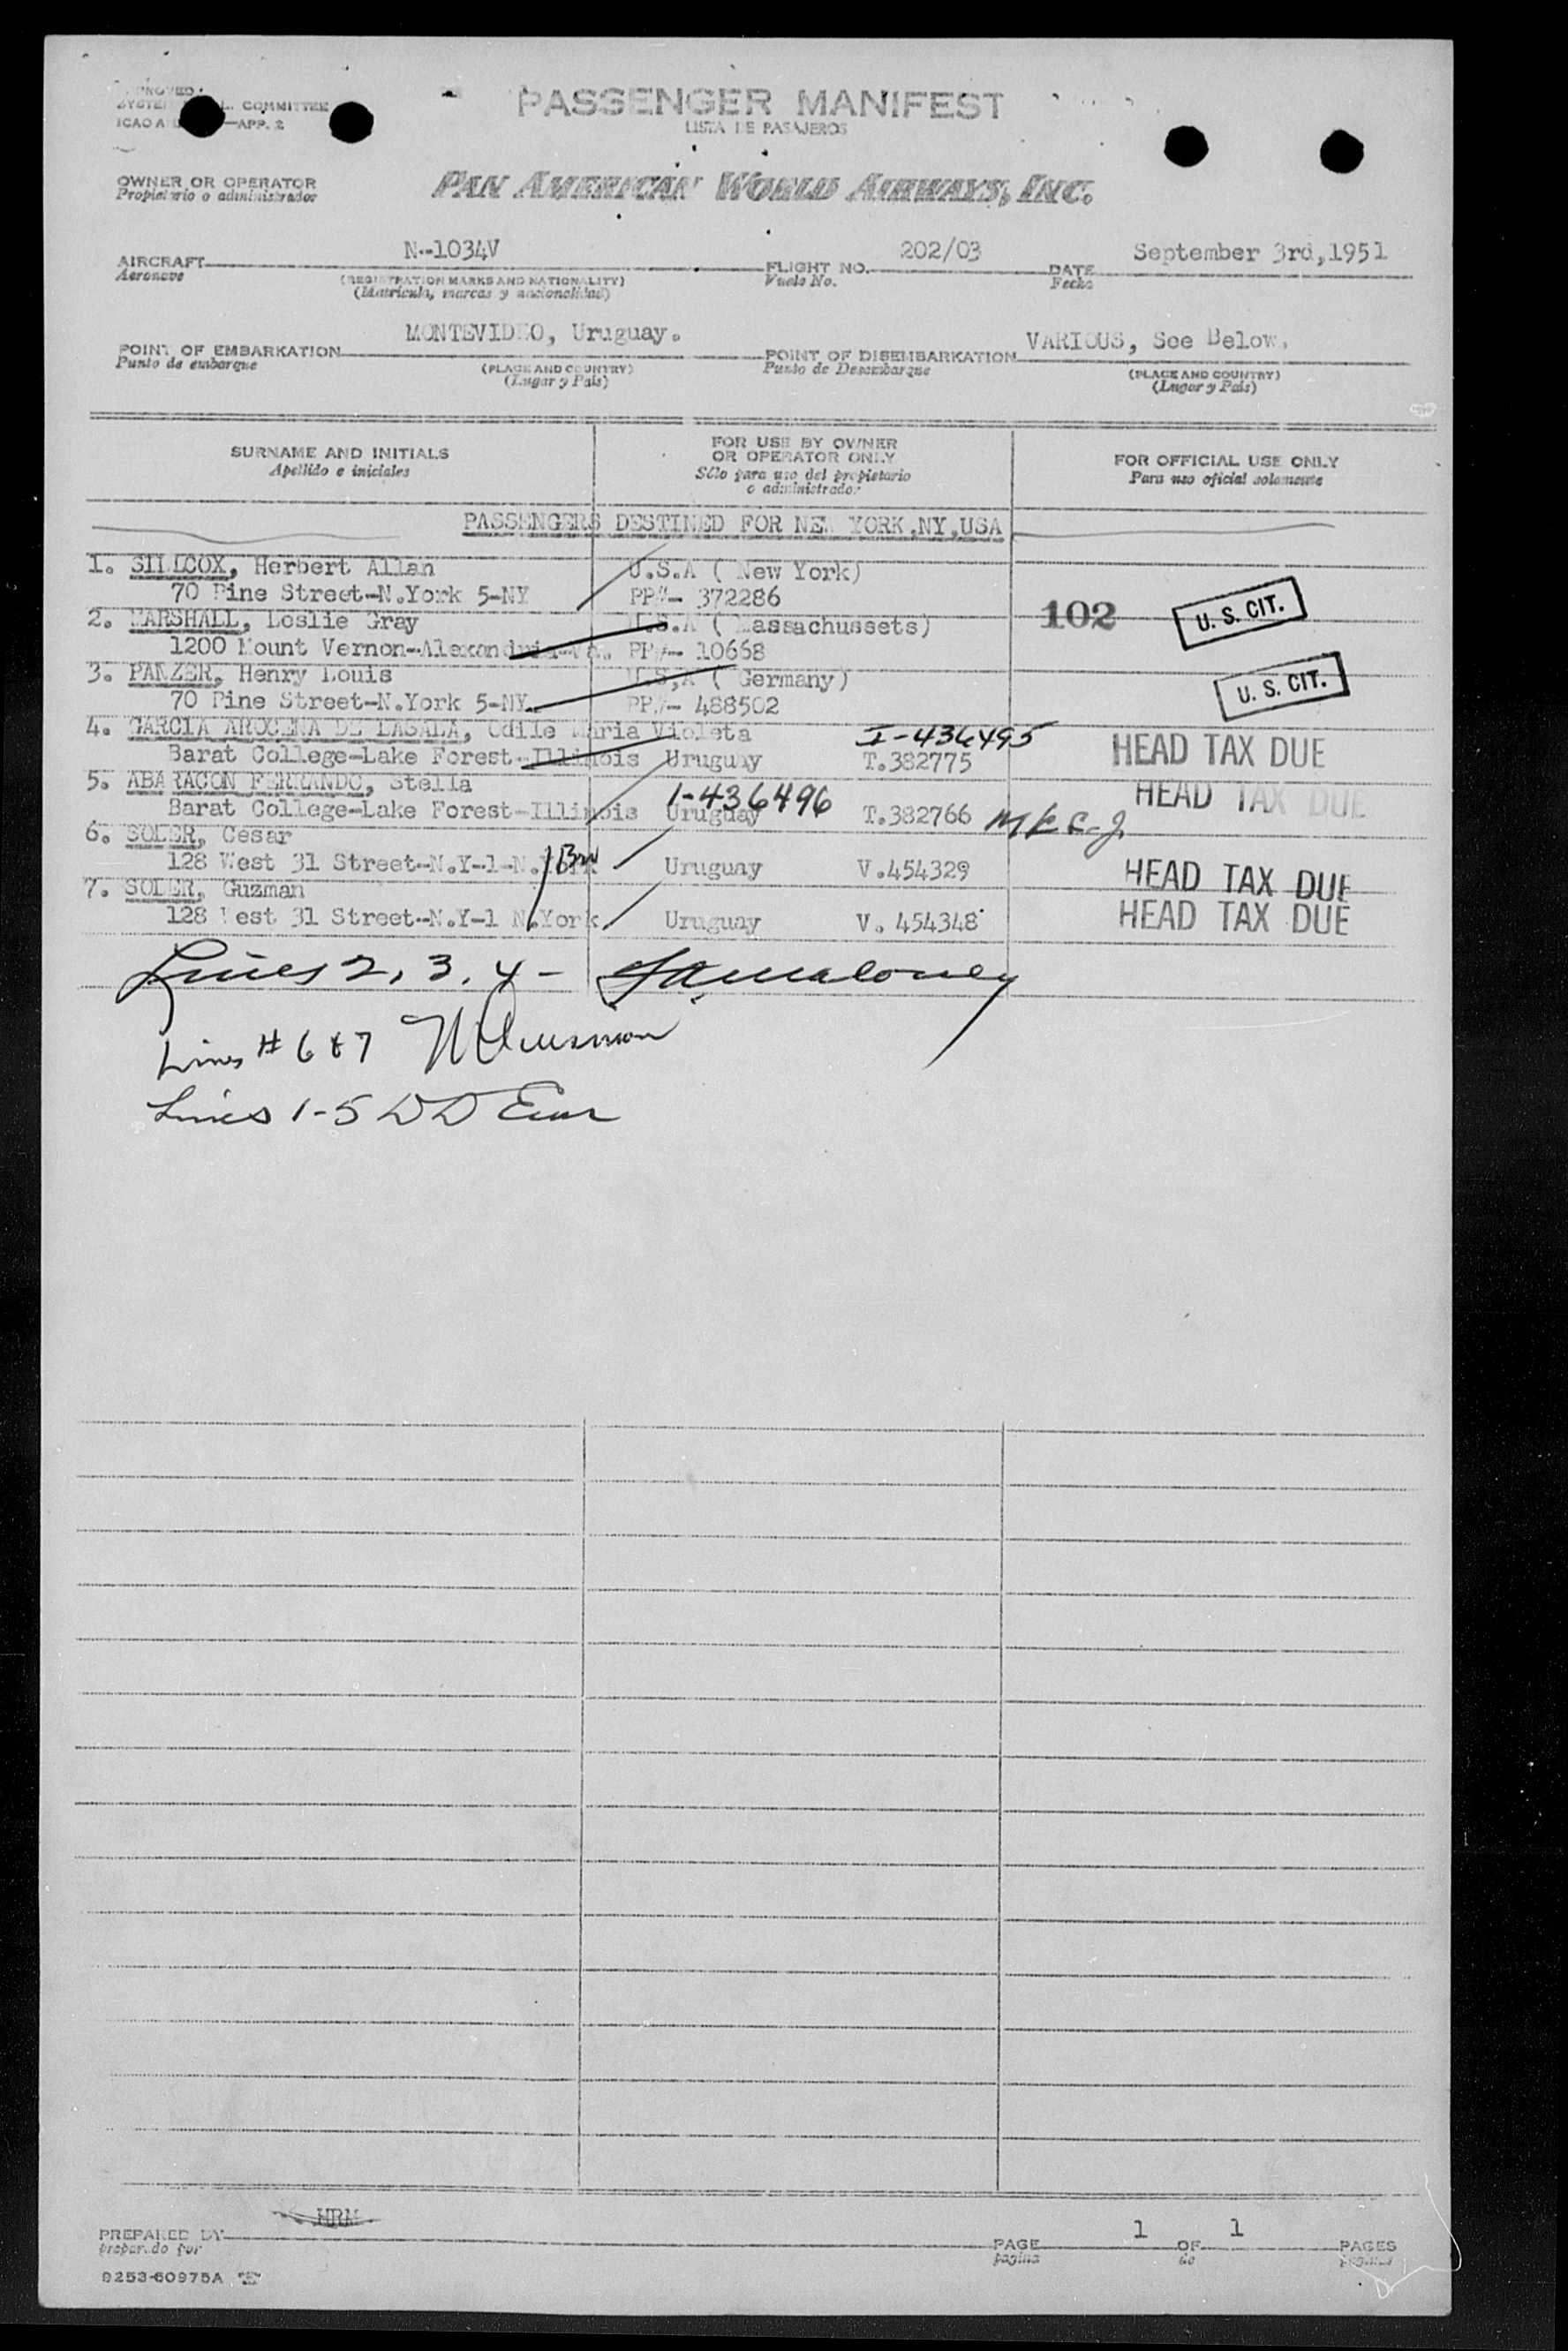 COMMITTEE
ICAO A —APP. 2
PASSENGER MANIFEST
LISTA DE PASAJEROS
OWNER OR OPERATOR
Propietario o administrador
PAN AMERICAN WORLD AIRWAYS, INC.
AIRCRAFT N--1034V FLIGHT NO. 202/03 DATE September 3rd,1951
Aeronave (REGISTRATION MARKS AND NATIONALITY) Vuelo No. Fecha
(Matricula, marcas y nacionalidad)
POINT OF EMBARKATION MONTEVIDEO, Uruguay. POINT OF DISEMBARKATION VARIOUS, See Below.
Punto de embarque (PLACE AND COUNTRY) Punto de Desembarque (PLACE AND COUNTRY)
(Lugar y Pais) (Lugar y Pais)
SURNAME AND INITIALS FOR USE BY OWNER OR OPERATOR ONLY FOR OFFICIAL USE ONLY
Apellido e iniciales Sólo para uso del propietario o administrador Para uso oficial solamente
PASSENGERS DESTINED FOR NEW YORK,NY,USA
1. SILLCOX, Herbert Allan U.S.A ( New York)
70 Pine Street-N.York 5-NY PP#- 372286
102 U. S. CIT.
2. MARSHALL, Leslie Gray U.S.A ( Massachussets)
1200 Mount Vernon-Alexandria-Va. PP#- 10668
3. PANZER, Henry Louis U.S,A ( Germany)
70 Pine Street-N.York 5-NY. PP#- 488502 U. S. CIT.
4. GARCIA AROCENA DE LASALA, Odile Maria Violeta I-436495
Barat College-Lake Forest-Illinois Uruguay T.382775 HEAD TAX DUE
5. ABARACON FERRANDO, Stella 1-436496 HEAD TAX DUE
Barat College-Lake Forest-Illinois Uruguay T.382766
6. SOLER, Cesar
128 West 31 Street-N.Y-1-N.York Uruguay V.454329 HEAD TAX DUE
7. SOLER, Guzman
128 West 31 Street-N.Y-1 N.York Uruguay V. 454348 HEAD TAX DUE
Lines 2, 3, 4 - Maloney
Lines # 6 & 7
Lines 1-5 DD
HRM
PREPARED BY PAGE 1 OF 1 PAGES
preparado por pagina de paginas
9253-60975A